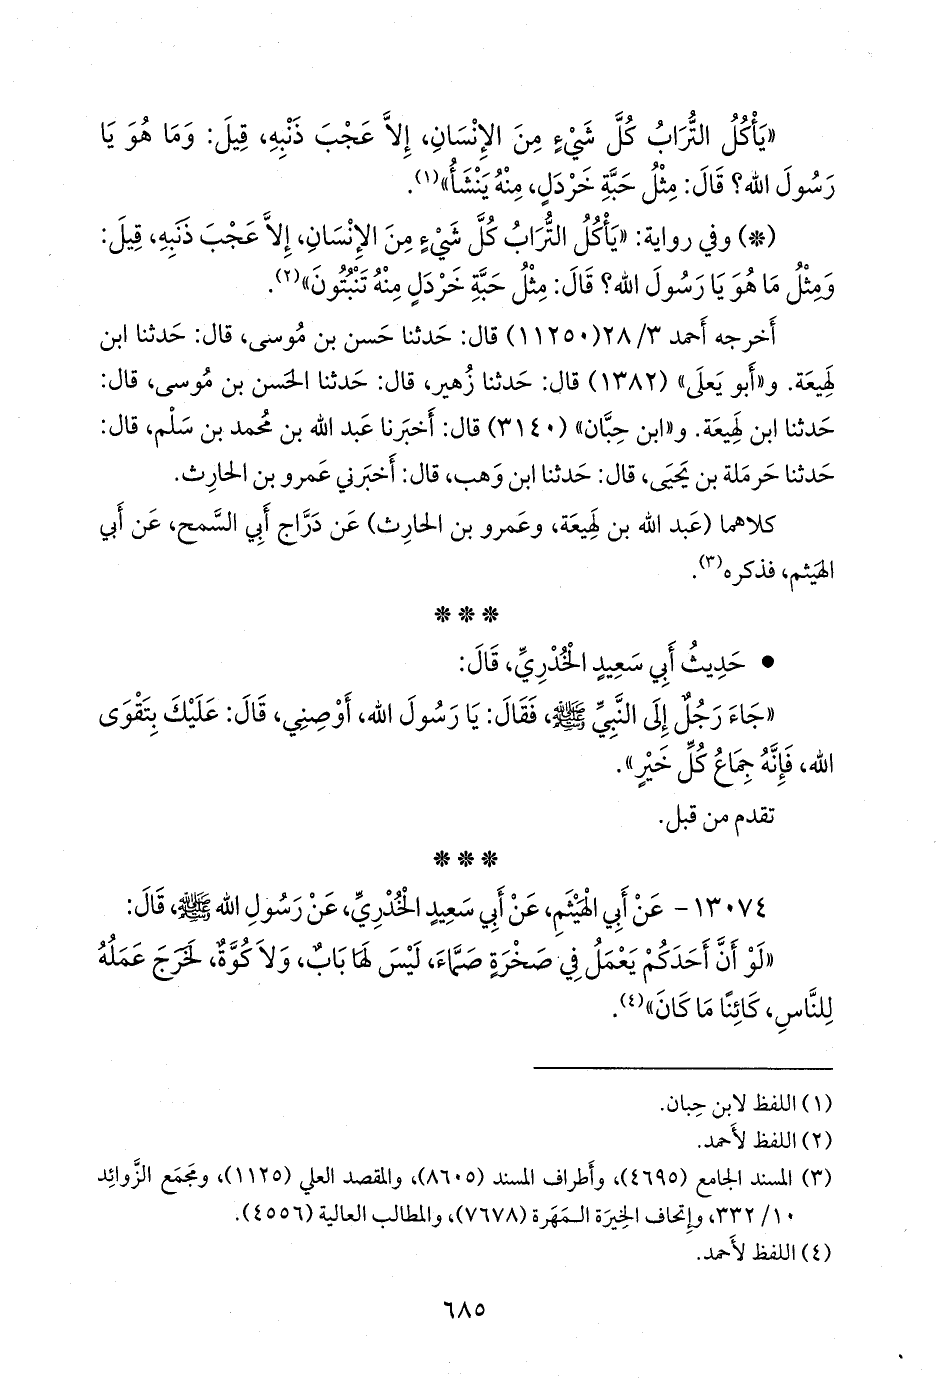 «يَأْكُلُ التُّرَابُ كُلَّ شَيْءٍ مِنَ الإِنْسَانِ، إِلاَّ عَجْبَ ذَنْبِهِ، قِيلَ: وَمَا هُوَ يَا
رَسُولَ الله؟ قَالَ: مِثْلُ حَبَّةِ خَرْدَلٍ، مِنْهُ يَنْشَأُ»(١).
(*) وفي رواية: «يَأْكُلُ التُّرَابُ كُلَّ شَيْءٍ مِنَ الإِنْسَانِ، إِلاَّ عَجْبَ ذَنَبِهِ، قِيلَ:
وَمِثْلُ مَا هُوَ يَا رَسُولَ الله؟ قَالَ: مِثْلُ حَبَّةِ خَرْدَلٍ مِنْهُ تَنْبُتُونَ»(٢).
أَخرجه أَحمد ٣/ ٢٨(١١٢٥٠) قال: حَدثنا حَسن بن مُوسى، قال: حَدثنا ابن
لَهِيعَة. و«أَبو يَعلَى» (١٣٨٢) قال: حَدثنا زُهير، قال: حَدثنا الحَسن بن مُوسى، قال:
حَدثنا ابن لَهِيعَة. و«ابن حِبَّان» (٣١٤٠) قال: أَخبَرنا عَبد الله بن مُحمد بن سَلْم، قال:
حَدثنا حَرملة بن يَحيَى، قال: حَدثنا ابن وَهب، قال: أَخبَرني عَمرو بن الحارِث.
كلاهما (عَبد الله بن لَهِيعَة، وعَمرو بن الحارِث) عَن دَرَّاج أَبي السَّمح، عَن أَبي
الهَيثم، فذكره(٣).
* * *
• حَدِيثُ أَبِي سَعِيدٍ الخُدْرِيِّ، قَالَ:
«جَاءَ رَجُلٌ إِلَى النَّبِيِّ ﷺ، فَقَالَ: يَا رَسُولَ الله، أَوْصِنِي، قَالَ: عَلَيْكَ بِتَقْوَى
الله، فَإِنَّهُ جِمَاعُ كُلِّ خَيْرٍ».
تقدم من قبل.
* * *
١٣٠٧٤ - عَنْ أَبِي الهَيْثَمِ، عَنْ أَبِي سَعِيدٍ الخُدْرِيِّ، عَنْ رَسُولِ الله ﷺ، قَالَ:
«لَوْ أَنَّ أَحَدَكُمْ يَعْمَلُ فِي صَخْرَةٍ صَمَّاءَ، لَيْسَ لَهَا بَابٌ، وَلاَ كُوَّةٌ، لَخَرَجَ عَمَلُهُ
لِلنَّاسِ، كَائِنًا مَا كَانَ»(٤).
(١) اللفظ لابن حِبان.
(٢) اللفظ لأَحمد.
(٣) المسند الجامع (٤٦٩٥)، وأَطراف المسند (٨٦٠٥)، والمقصد العلي (١١٢٥)، ومَجمَع الزَّوائِد
١٠/ ٣٣٢، وإِتحاف الخِيرَة المَهَرة (٧٦٧٨)، والمطالب العالية (٤٥٥٦).
(٤) اللفظ لأَحمد.
٦٨٥